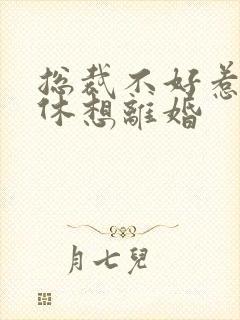 总裁不好惹
休想離婚
月七兒